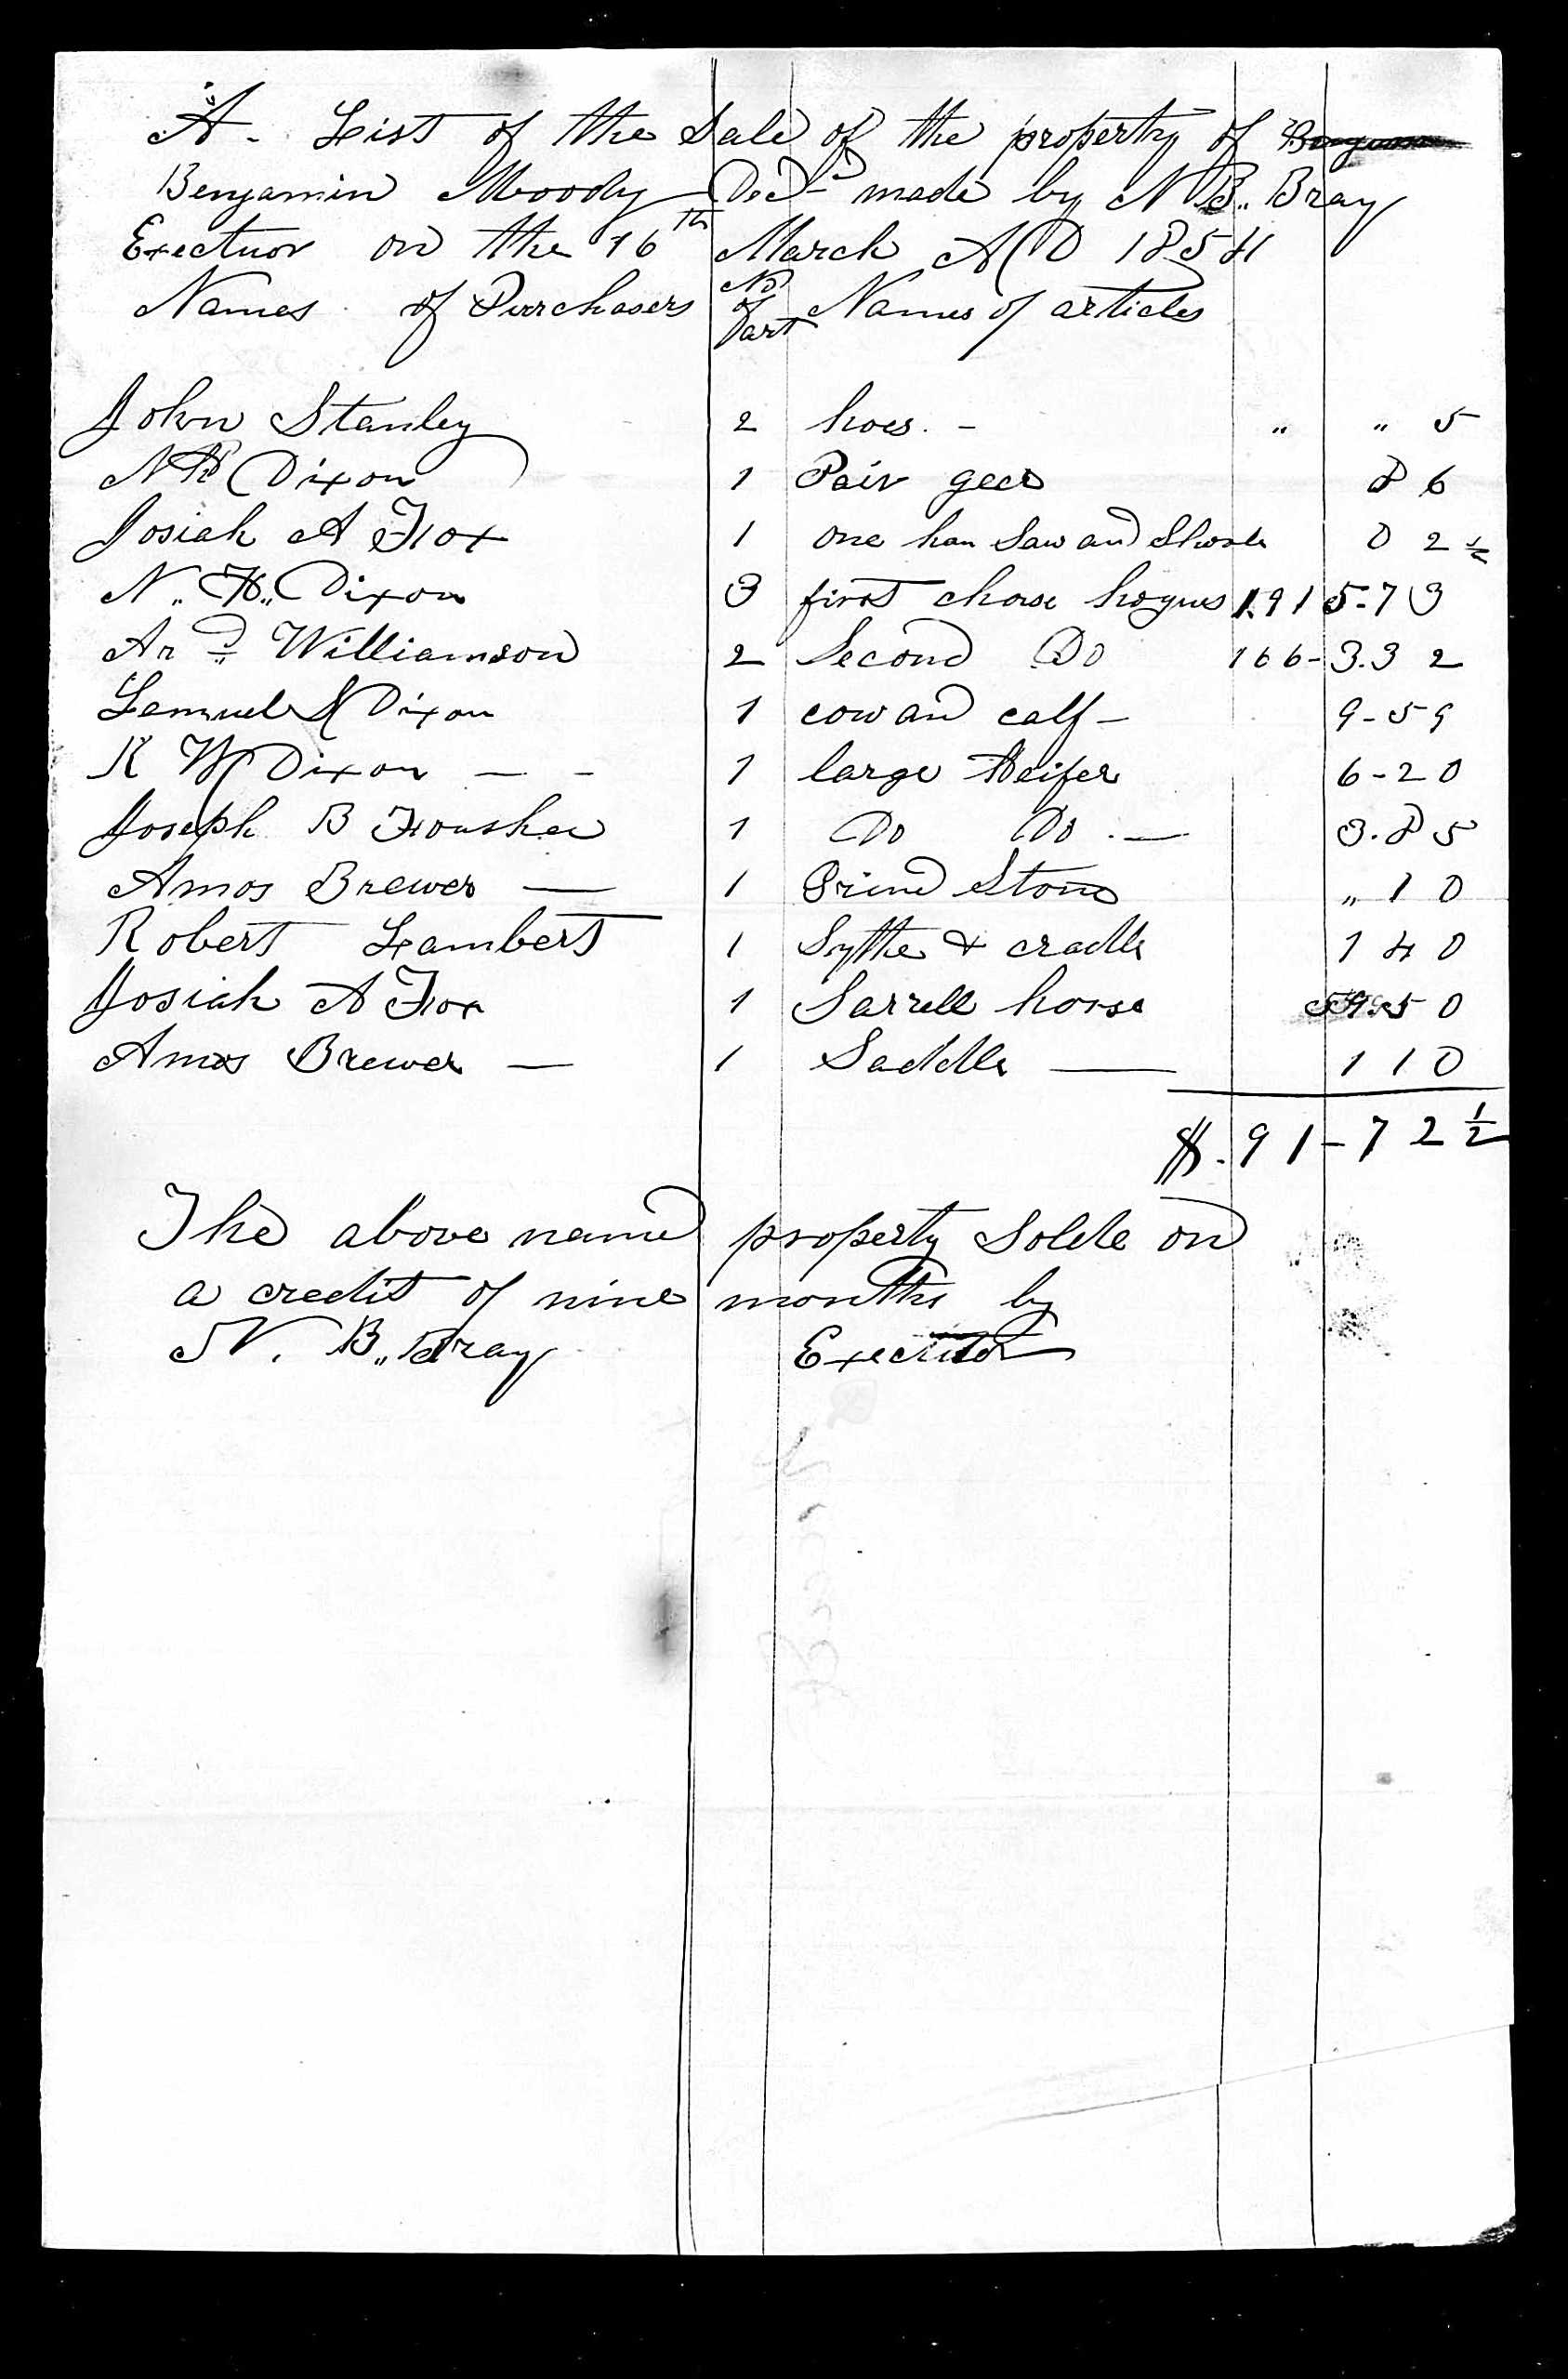 A. List of the Sale of the property of
Benjamin Moody Decd made by N B,, Bray
Exectuor on the 16th March AD 1854
Names of Purchasers No of art Names of articles
John Stanley 2 hoes. - " " 5
N H Dixon 1 Pair gees 86
Josiah A Fox 1 one han Saw and 0 2 ½
N,, H,, Dixon 3 first choise hogues 191 5-73
Ard Williamson 2 Second Do 166- 3.32
Lemuel Dixon 1 cow and calf - 9-59
R W Dixon - - 1 large Heifer 6-20
Joseph B Foushee 1 Do Do .- 3.85
Amos Brewer - 1 Grind Stone " 10
Robert Lambert 1 Sythe & cradle 1 40
Josiah A Fox 1 Sarrell horse 59.50
Amos Brewer - 1 Saddle - 1 10
$. 91-72 ½
The above named property Solde on
a credit of nine months by
N. B,, Bray Executor